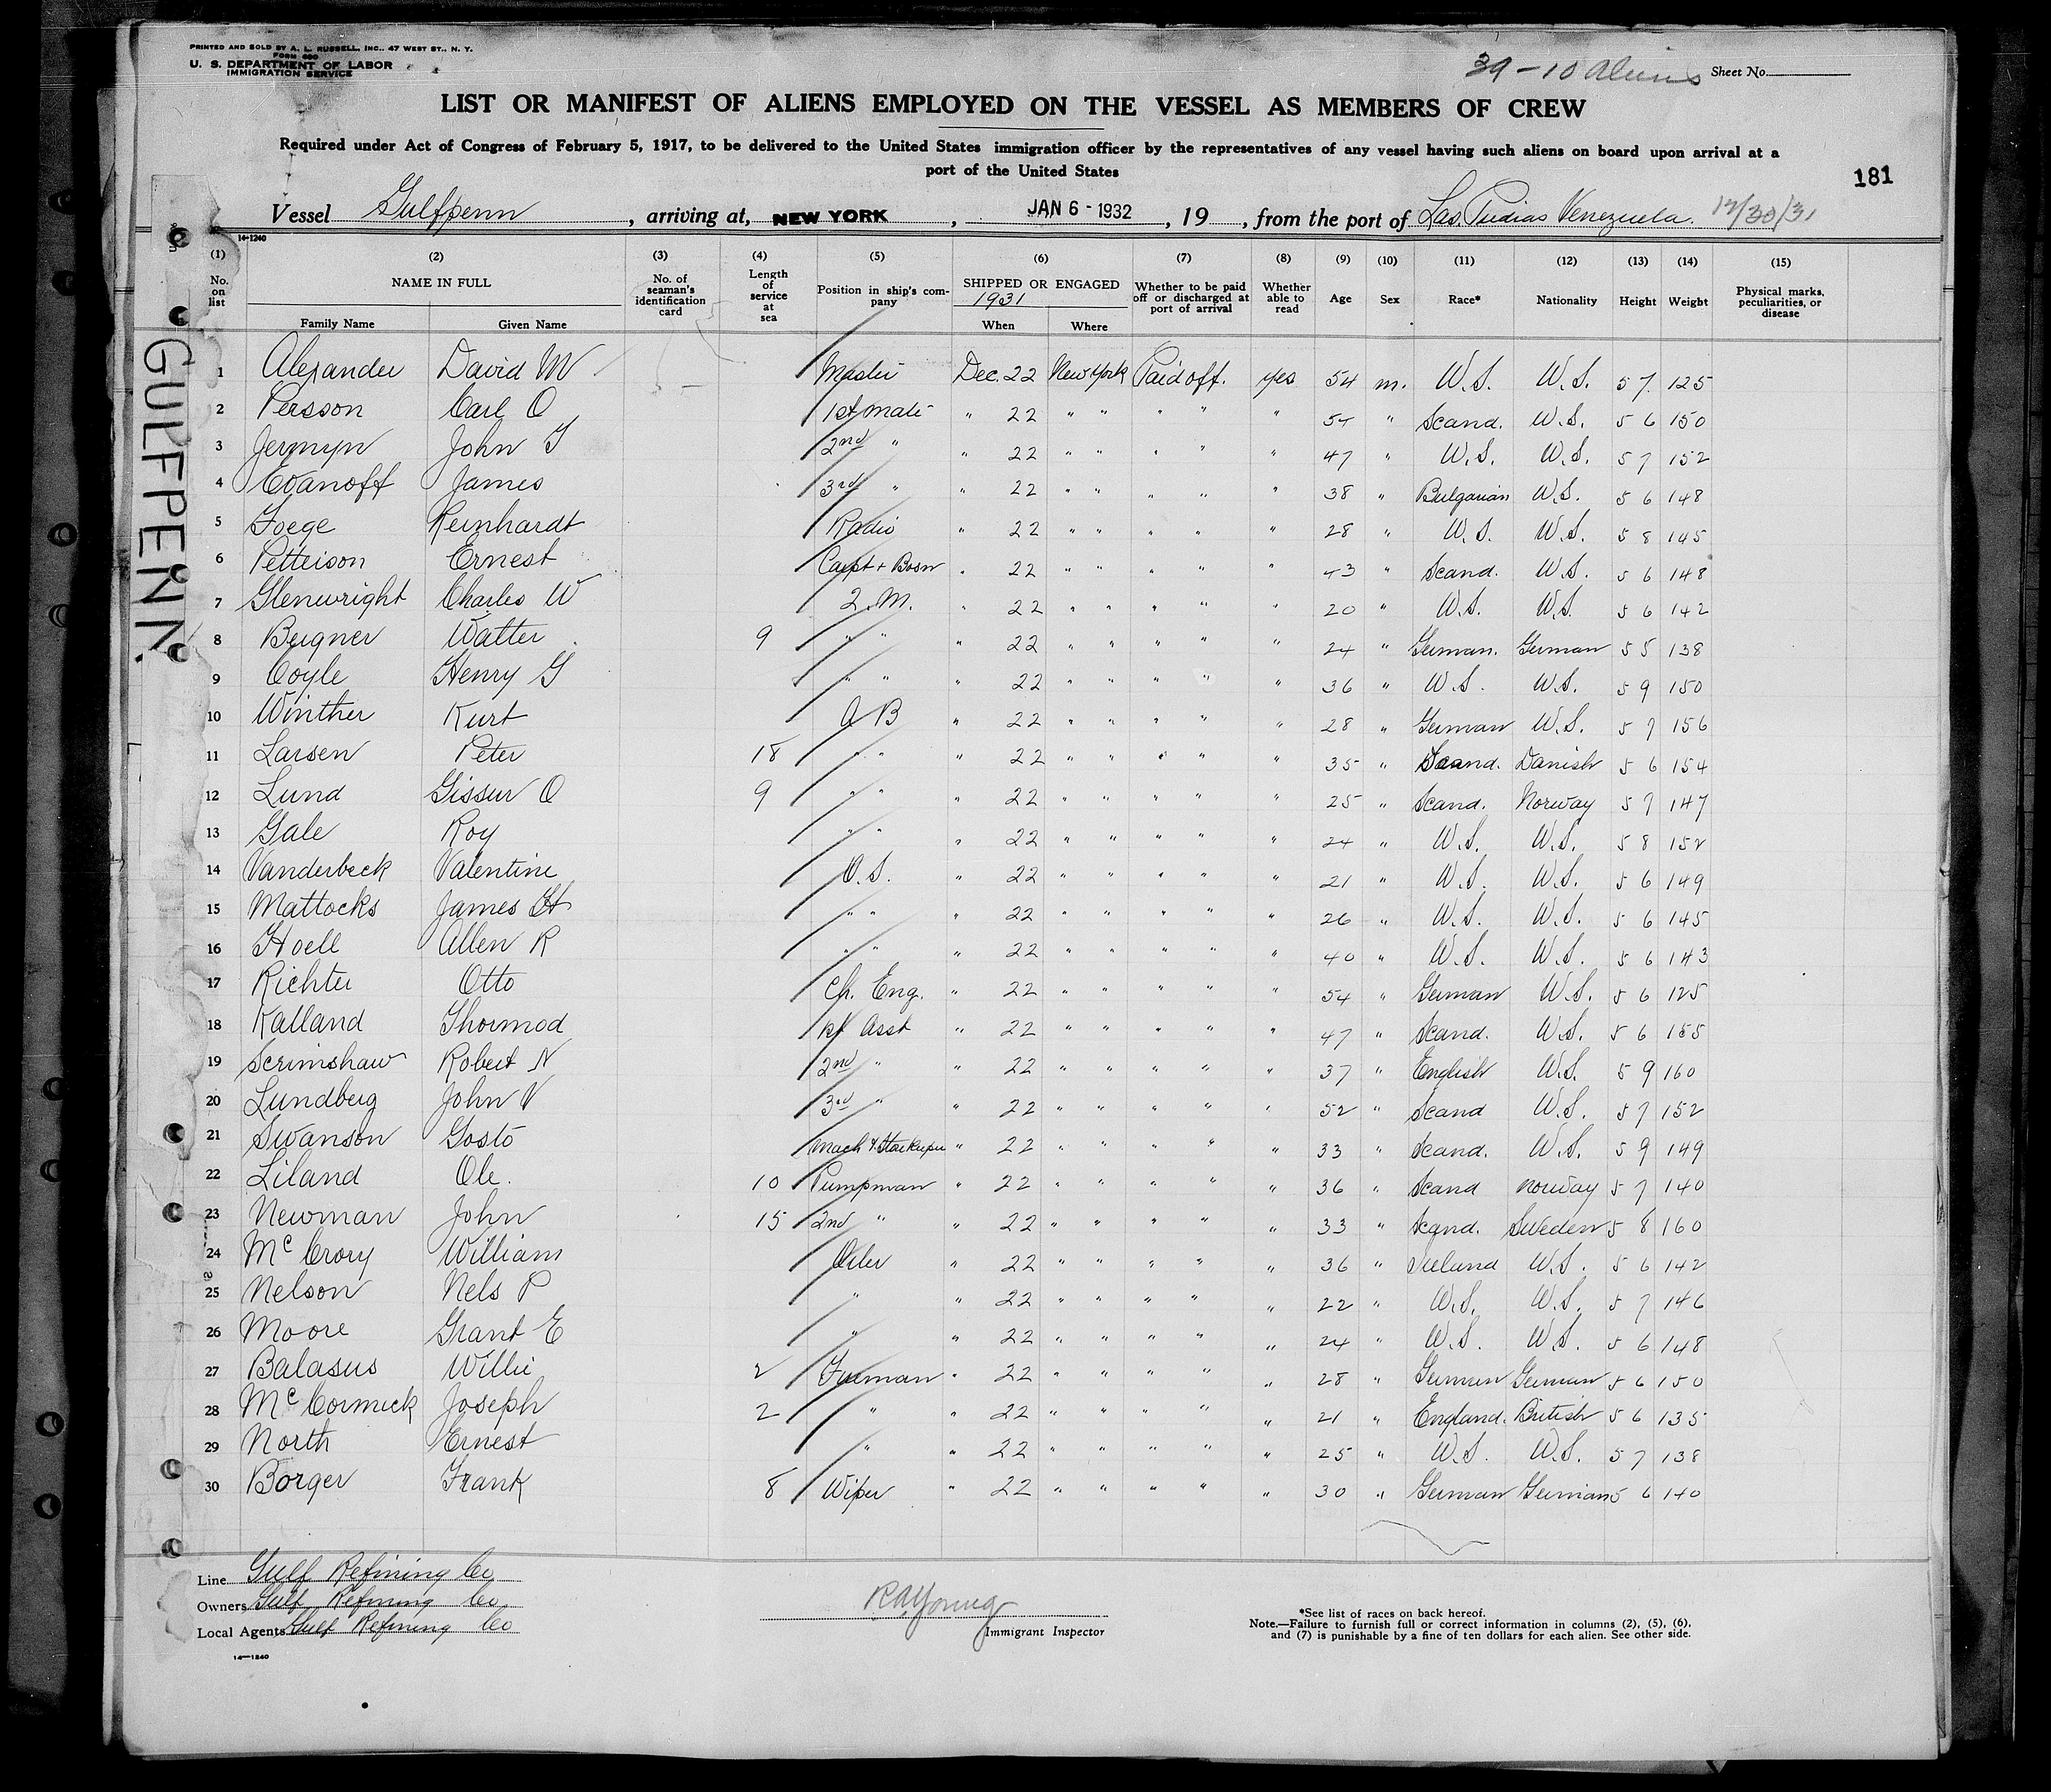 PRINTED AND SOLD BY A. L. RUSSELL, INC., 47 WEST ST., N. Y.
FORM 680
U. S. DEPARTMENT OF LABOR
IMMIGRATION SERVICE
39 - 10 Aliens Sheet No.
LIST OR MANIFEST OF ALIENS EMPLOYED ON THE VESSEL AS MEMBERS OF CREW
Required under Act of Congress of February 5, 1917, to be delivered to the United States immigration officer by the representatives of any vessel having such aliens on board upon arrival at a
port of the United States
181
Vessel Gulfpenn, arriving at, NEW YORK, JAN 6 - 1932, 19, from the port of Las Venezuela. 12/30/31
14-1240
GULFPENN.
(1) (2) (3) (4) (5) (6) (7) (8) (9) (10) (11) (12) (13) (14) (15)
No. on list NAME IN FULL Family Name Given Name No. of seaman's identification card Length of service at sea Position in ship's company SHIPPED OR ENGAGED 1931 When Where Whether to be paid off or discharged at port of arrival Whether able to read Age Sex Race* Nationality Height Weight Physical marks, peculiarities, or disease
1 Alexander David M Master Dec. 22 New York Paid off. yes 54 m. U.S. U.S. 5 7 125
2 Persson Carl O 1st mate " 22 " " " " " 54 " Scand. U.S. 5 6 150
3 Jermyn John J 2nd " " 22 " " " " " 47 " U.S. U.S. 5 7 152
4 Evanoff James 3rd " " 22 " " " " " 38 " Bulgarian U.S. 5 6 148
5 Joege Reinhardt Radio " 22 " " " " " 28 " U.S. U.S. 5 8 145
6 Petterson Ernest Carpt + Bosn " 22 " " " " " 43 " Scand. U.S. 5 6 148
7 Glenwright Charles W 2. M. " 22 " " " " " 20 " U.S. U.S. 5 6 142
8 Bergner Walter 9 " " " 22 " " " " " 24 " German. German 5 5 138
9 Coyle Henry G " " " 22 " " " " " 36 " U.S. U.S. 5 9 150
10 Winther Kurt A B " 22 " " " " " 28 " German U.S. 5 7 156
11 Larsen Peter 18 " " " 22 " " " " " 35 " Scand. Danish 5 6 154
12 Lund Gissur O 9 " " " 22 " " " " " 25 " Scand. Norway 5 7 147
13 Gale Roy " " " 22 " " " " " 24 " U.S. U.S. 5 8 152
14 Vanderbeck Valentine O.S. " 22 " " " " " 21 " U.S. U.S. 5 6 149
15 Mattocks James H " " " 22 " " " " " 26 " U.S. U.S. 5 6 145
16 Hoell Allen R " " " 22 " " " " " 40 " U.S. U.S. 5 6 143
17 Richter Otto Ch. Eng. " 22 " " " " " 54 " German U.S. 5 6 125
18 Kalland Thormod 1st Asst " 22 " " " " " 47 " Scand. U.S. 5 6 155
19 Scrimshaw Robert N 2nd " " 22 " " " " " 37 " English U.S. 5 9 160
20 Lundberg John V 3rd " " 22 " " " " " 52 " Scand U.S. 5 7 152
21 Swanson Gosto Mach & Storkeeper " 22 " " " " " 33 " Scand. U.S. 5 9 149
22 Liland Ole. 10 Pumpman " 22 " " " " " 36 " Scand Norway 5 7 140
23 Newman John 15 2nd " " 22 " " " " " 33 " Scand. Sweden 5 8 160
24 McCrory William Oiler " 22 " " " " " 36 " Ireland U.S. 5 6 142
25 Nelson Nels P " " 22 " " " " " 22 " U.S. U.S. 5 7 146
26 Moore Grant E " " 22 " " " " " 24 " U.S. U.S. 5 6 148
27 Balasus Willie 2 Fireman " 22 " " " " " 28 " German German 5 6 150
28 McCormick Joseph 2 " " 22 " " " " " 21 " England. British 5 6 135
29 North Ernest " " 22 " " " " " 25 " U.S. U.S. 5 7 138
30 Borger Frank 8 Wiper " 22 " " " " " 30 " German German 5 6 140
Line Gulf Refining Co
Owners Gulf Refining Co
Local Agents Gulf Refining Co
14-1240
R.A. Young
Immigrant Inspector
*See list of races on back hereof.
Note.—Failure to furnish full or correct information in columns (2), (5), (6),
and (7) is punishable by a fine of ten dollars for each alien. See other side.